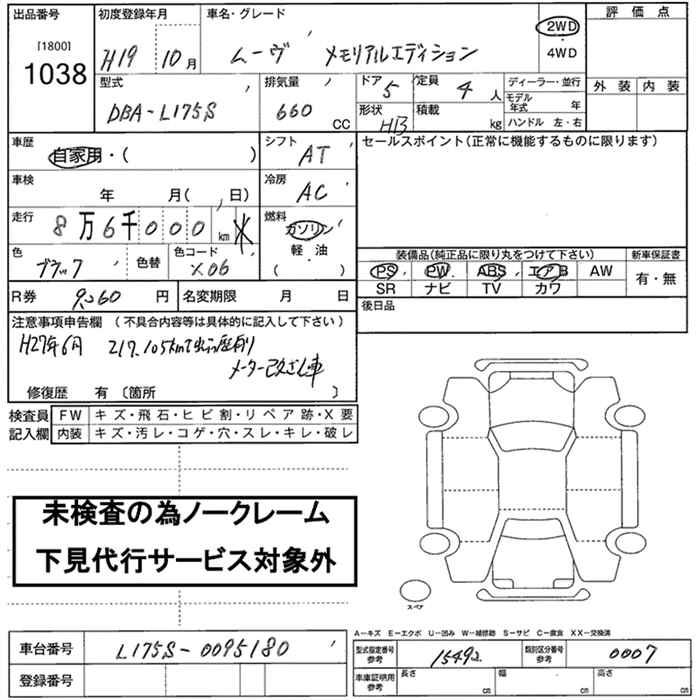 出品番号 初度登録年月 車名・グレード 評価点
[1800] 1038 H19 10月 ムーヴ メモリアルエディション 2WD・4WD
外装 内装
型式 排気量 ドア 5 定員 4人 ディーラー・並行
DBA-L175S 660 CC 形状 HB 積載 kg モデル年式 年
ハンドル 左・右
車歴 自家用・( ) シフト AT セールスポイント(正常に機能するものに限ります)
車検 年 月( , 日) 冷房 AC
走行 8万6千000km 燃料 ガソリン 軽・油 ( )
色 ブラック 色替 色コード X06
装備品(純正品に限り丸をつけて下さい) 新車保証書
PS PW ABS エアB AW 有・無
SR ナビ TV カワ
R券 9,060円 名変期限 月 日 後日品
注意事項申告欄 (不具合内容等は具体的に記入して下さい)
H27年6月 217,105kmで出品歴有り
メーター改ざん車
修復歴 有 〔箇所 〕
検査員 FW キズ・飛石・ヒビ割・リペア跡・X要
記入欄 内装 キズ・汚レ・コゲ・穴・スレ・キレ・破レ
未検査の為ノークレーム
下見代行サービス対象外
スペア
A-キズ E-エクボ U-凹み W-補修跡 S-サビ C-腐食 XX-交換済
車台番号 L175S-0095180 型式指定番号 参考 15492 類別区分番号 参考 0007
登録番号 車庫証明用 参考 長さ cm 幅 cm 高さ cm